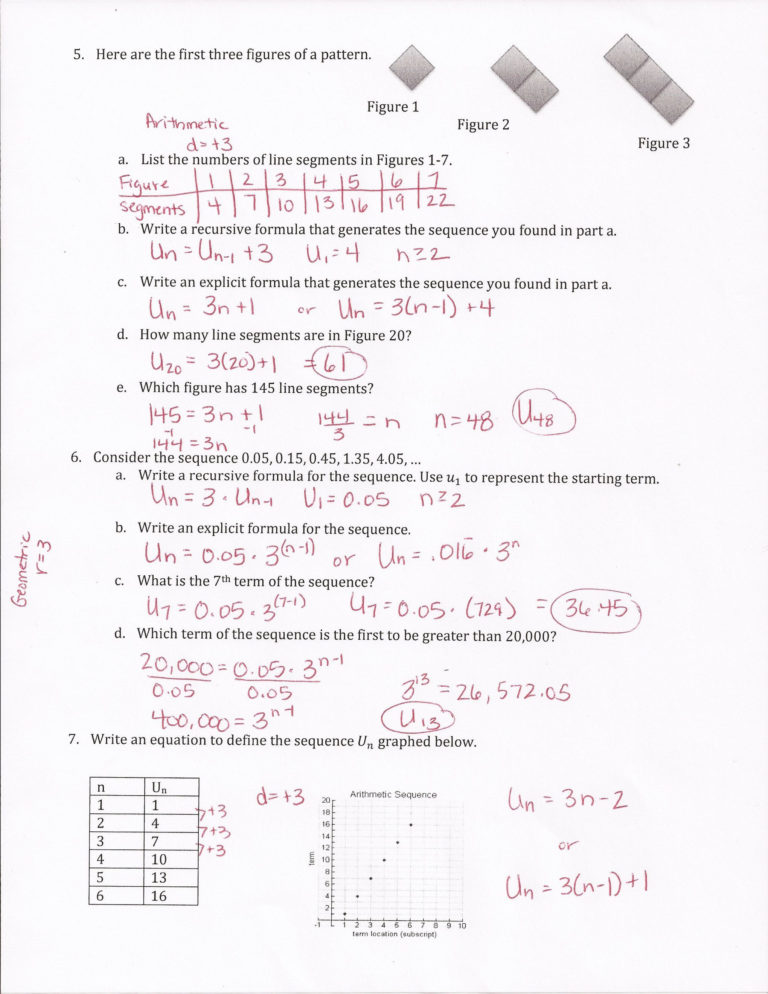 5. Here are the first three figures of a pattern.
Figure 1
Figure 2
Figure 3
Arithmetic
d= +3
a. List the numbers of line segments in Figures 1-7.
Figure 1 2 3 4 5 6 7
segments 4 7 10 13 16 19 22
b. Write a recursive formula that generates the sequence you found in part a.
Un = Un-1 + 3 U1 = 4 n ≥ 2
c. Write an explicit formula that generates the sequence you found in part a.
Un = 3n + 1 or Un = 3(n-1) + 4
d. How many line segments are in Figure 20?
U20 = 3(20)+1 = 61
e. Which figure has 145 line segments?
145 = 3n + 1 144/3 = n n = 48 U48
-1 -1
144 = 3n
6. Consider the sequence 0.05, 0.15, 0.45, 1.35, 4.05, ...
a. Write a recursive formula for the sequence. Use u1 to represent the starting term.
Un = 3 · Un-1 U1 = 0.05 n ≥ 2
Geometric
r = 3
b. Write an explicit formula for the sequence.
Un = 0.05 · 3^(n-1) or Un = .016̄ · 3^n
c. What is the 7th term of the sequence?
U7 = 0.05 · 3^(7-1) U7 = 0.05 · (729) = 36.45
d. Which term of the sequence is the first to be greater than 20,000?
20,000 = 0.05 · 3^n-1
0.05 0.05 3^13 = 26,572.05
400,000 = 3^n-1 U13
7. Write an equation to define the sequence Un graphed below.
n Un
1 1
2 4
3 7
4 10
5 13
6 16
7+3
7+3
7+3
d= +3
Arithmetic Sequence
20
18
16
14
12
10
8
6
4
2
term
-1 1 2 3 4 5 6 7 8 9 10
term location (subscript)
Un = 3n - 2
or
Un = 3(n-1) + 1